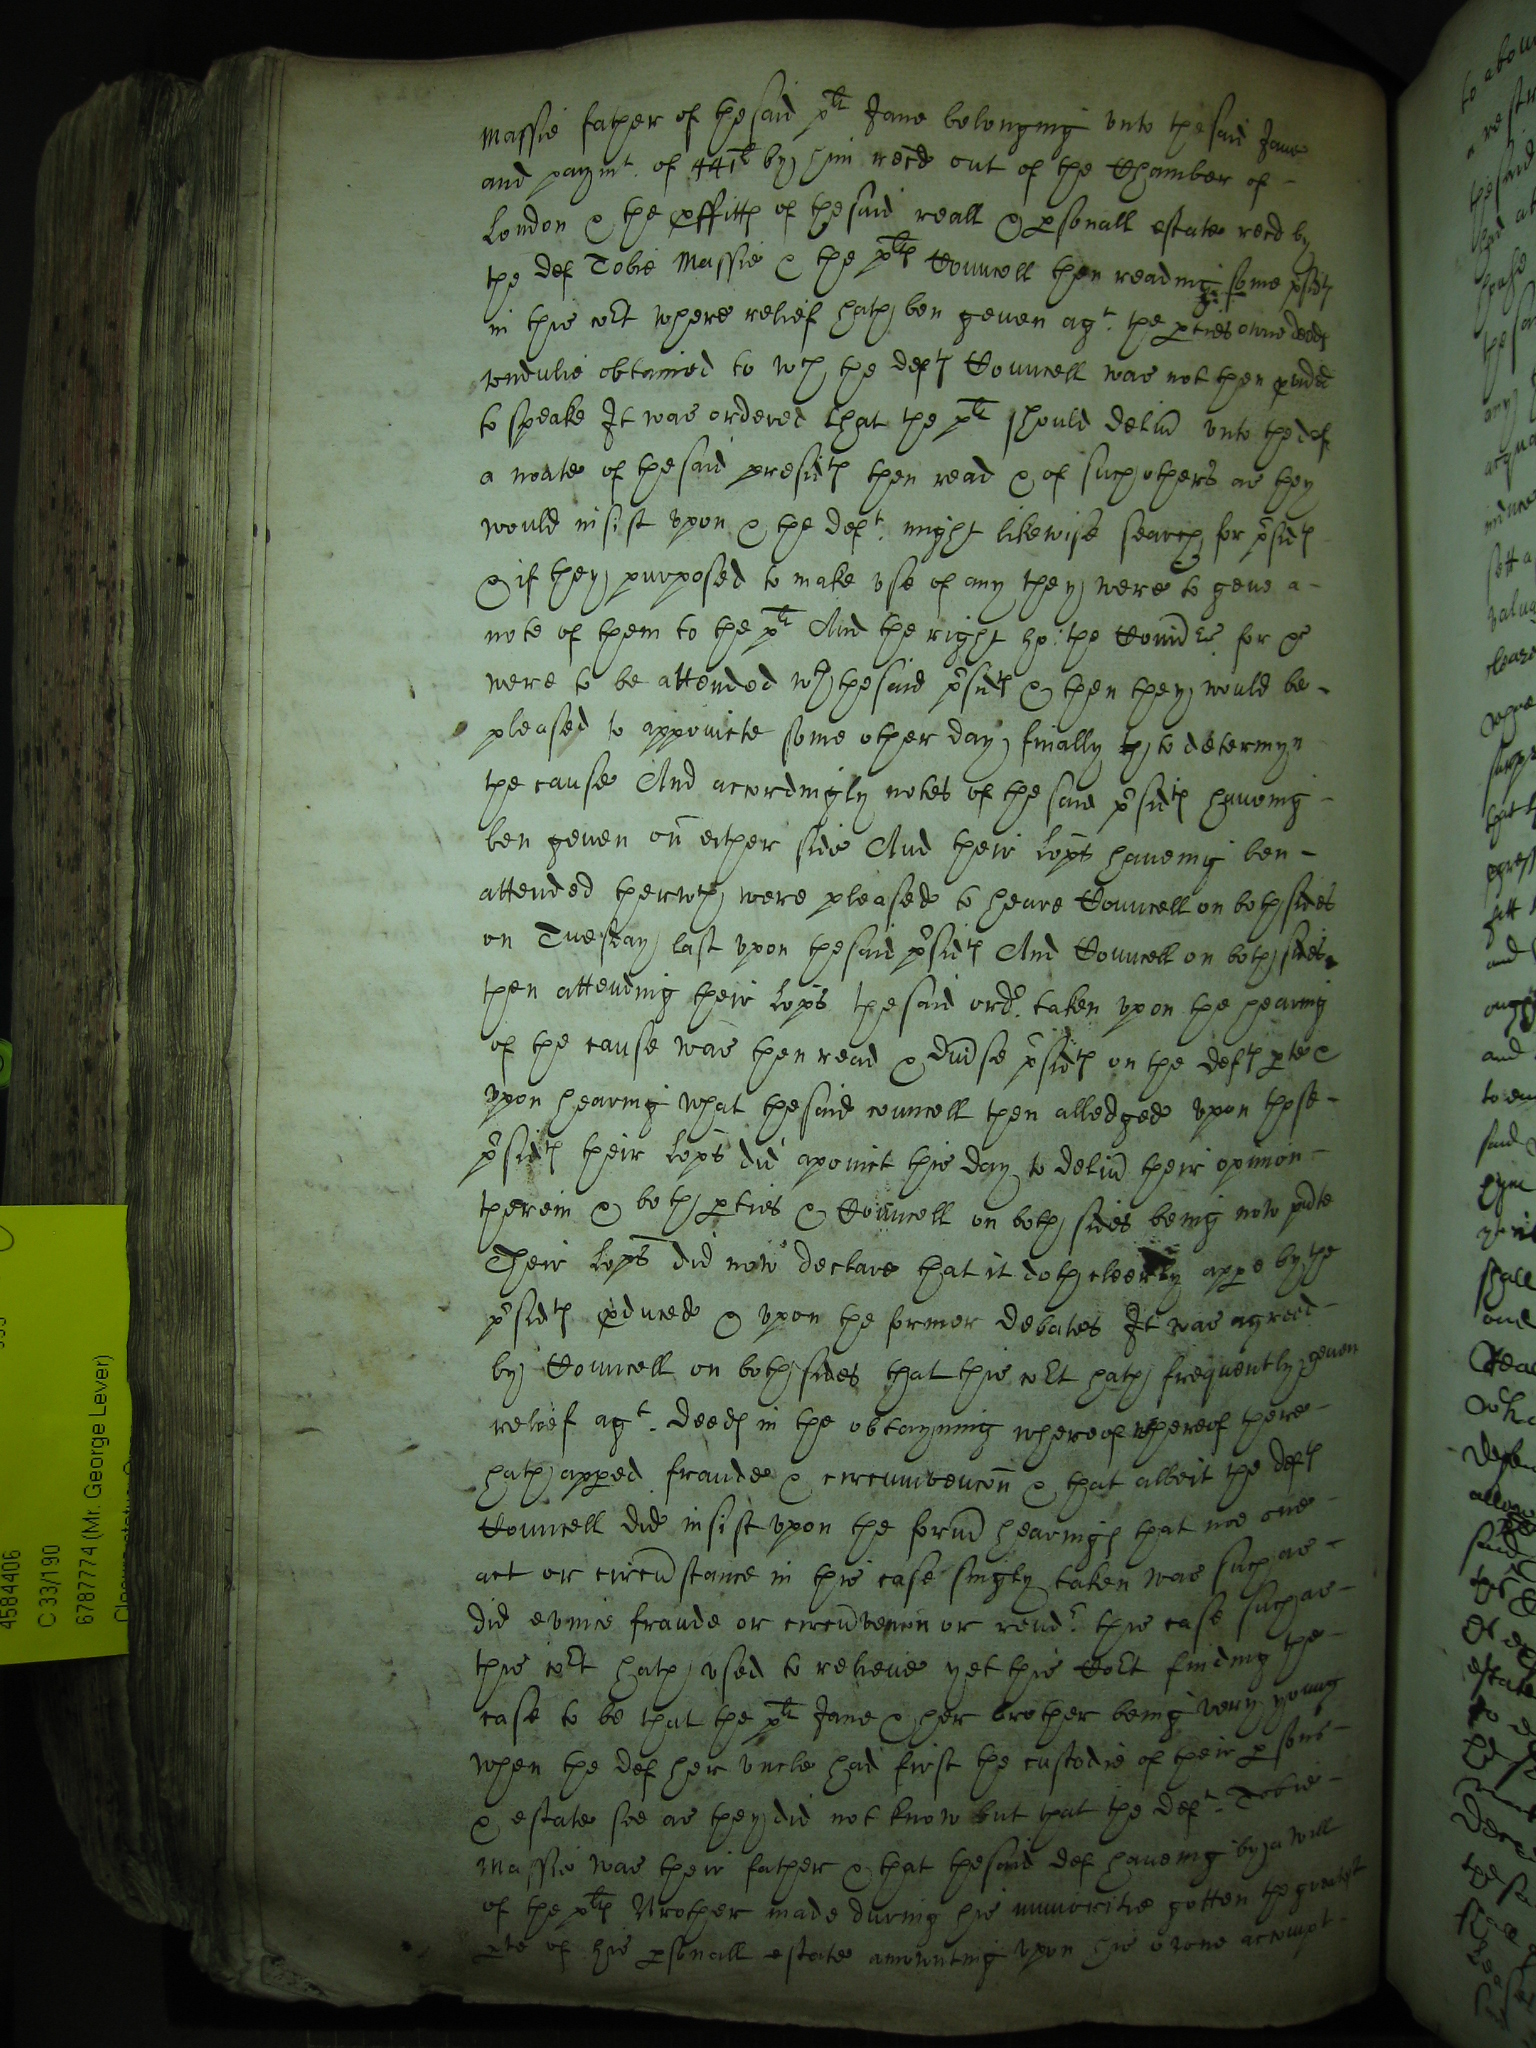 Massie father of the said plt Jane belonging vnto the said Jane
and paymt. of 441li by him recd out of the Chamber of
London & the pffitts of the said reall & psonall estate recd by
the def Tobie Massie & the plts Councell then reading some psidts
in this cort where relief hath ben geuen agt. the pties owne deeds
vndulie obtained to wch the defts Councell was not then pvided
to speake It was ordered that the plt should deliu vnto the def
a noate of the said presidts then read & of such others as they
would insist vpon & the deft. might likewise search for psidts
& if they purposed to make vse of any they were to geue a
note of them to the plt And the right ho: the Comrs. for &c
were to be attended wth the said psidts & then they would be
pleased to appointe some other day finally to determyn
the cause And accordingly notes of the said psidts haueing
ben geuen on either side And their Lopps haueing ben
attended therwth were pleased to heare Councell on both sides
on Tuesday last vpon the said psidts And Councell on both sides
then attending their Lopps the said ordr. taken vpon the hearing
of the cause was then read & diuse psidts on the defts pte &
vpon hearing what the said councell then alledged vpon those
psidts their Lopps did apoint this day to deliu their opinion
therein & both pties & Councell on both sides being now psnte
Their Lopps did now declare that it doth cleerly appe by the
psidts pduced & vpon the former debates It was agreed
by Councell on both sides that this cort hath frequently geuen
relief agt. deeds in the obtayning whereof whereof there
hath apped fraude & circumvencon & that albeit the defts
Councell did insist vpon the form hearings that noe one
act or circumstance in this case singly taken was such as
did evince fraude or circumvencon or rendr. this case such as
this cort hath vsed to relieue yet this Cort finding the
case to be that the plt Jane & her brother being very young
when the def her vncle had first the custodie of their psons
& estate soe as they did not know but that the deft. Tobie
Massie was their father & that the said def haueing by a will
of the plts Brother made during his minoritie gotten the greatest
pte of his psonall estate amounting vpon his owne accompt
4584406
C 33/190
6787774 (Mr. George Lever)